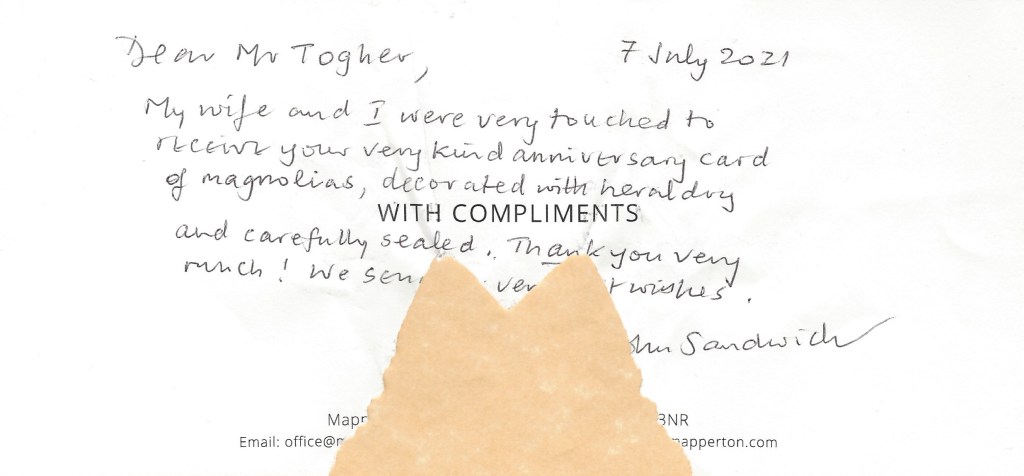 Dear Mr Togher,
7 July 2021
My wife and I were very touched to
receive your very kind anniversary card
of magnolias, decorated with heraldry
WITH COMPLIMENTS
and carefully sealed. Thank you very
much! We sen ver t wishes.
ohn Sandwich
Mapp 3NR
Email: office@m mapperton.com